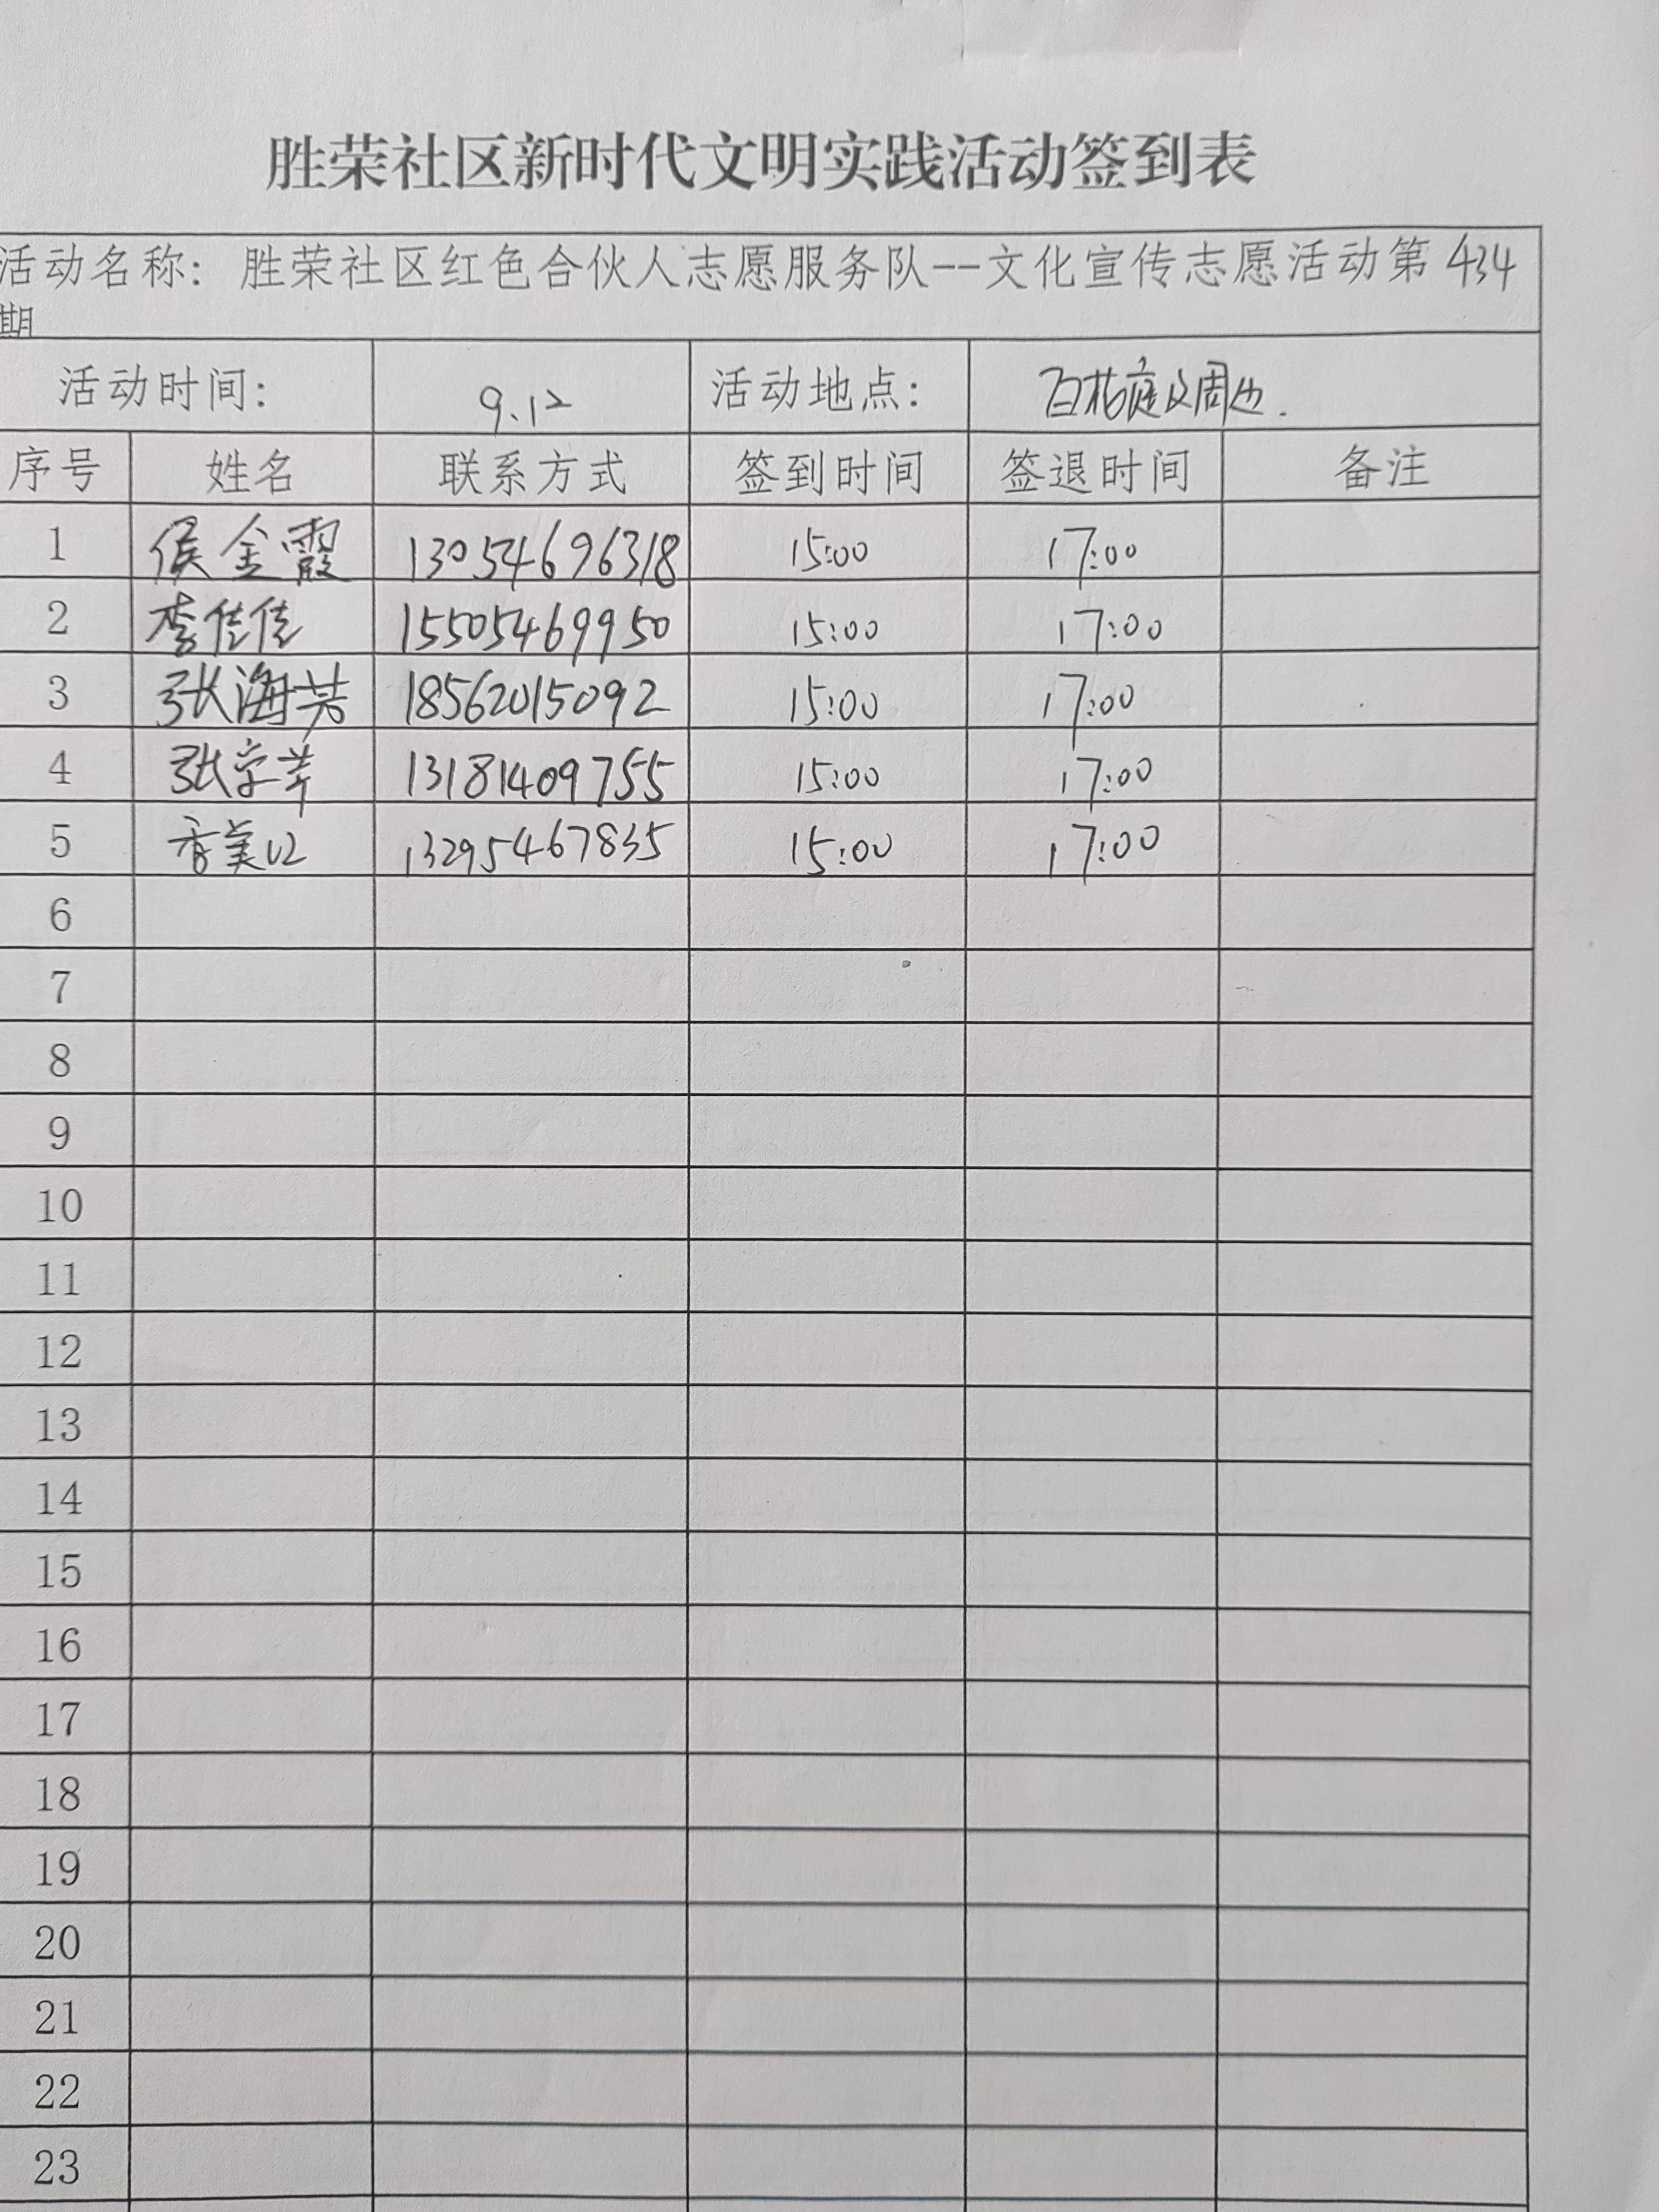 胜荣社区新时代文明实践活动签到表
活动名称：胜荣社区红色合伙人志愿服务队--文化宣传志愿活动第434
期
活动时间： 9.12 活动地点： 百花庭及周边.
序号 姓名 联系方式 签到时间 签退时间 备注
1 侯金霞 13054696318 15:00 17:00
2 李佳佳 15505469950 15:00 17:00
3 张海芳 18562015092 15:00 17:00
4 张 13181409755 15:00 17:00
5 美 13295467835 15:00 17:00
6
7
8
9
10
11
12
13
14
15
16
17
18
19
20
21
22
23